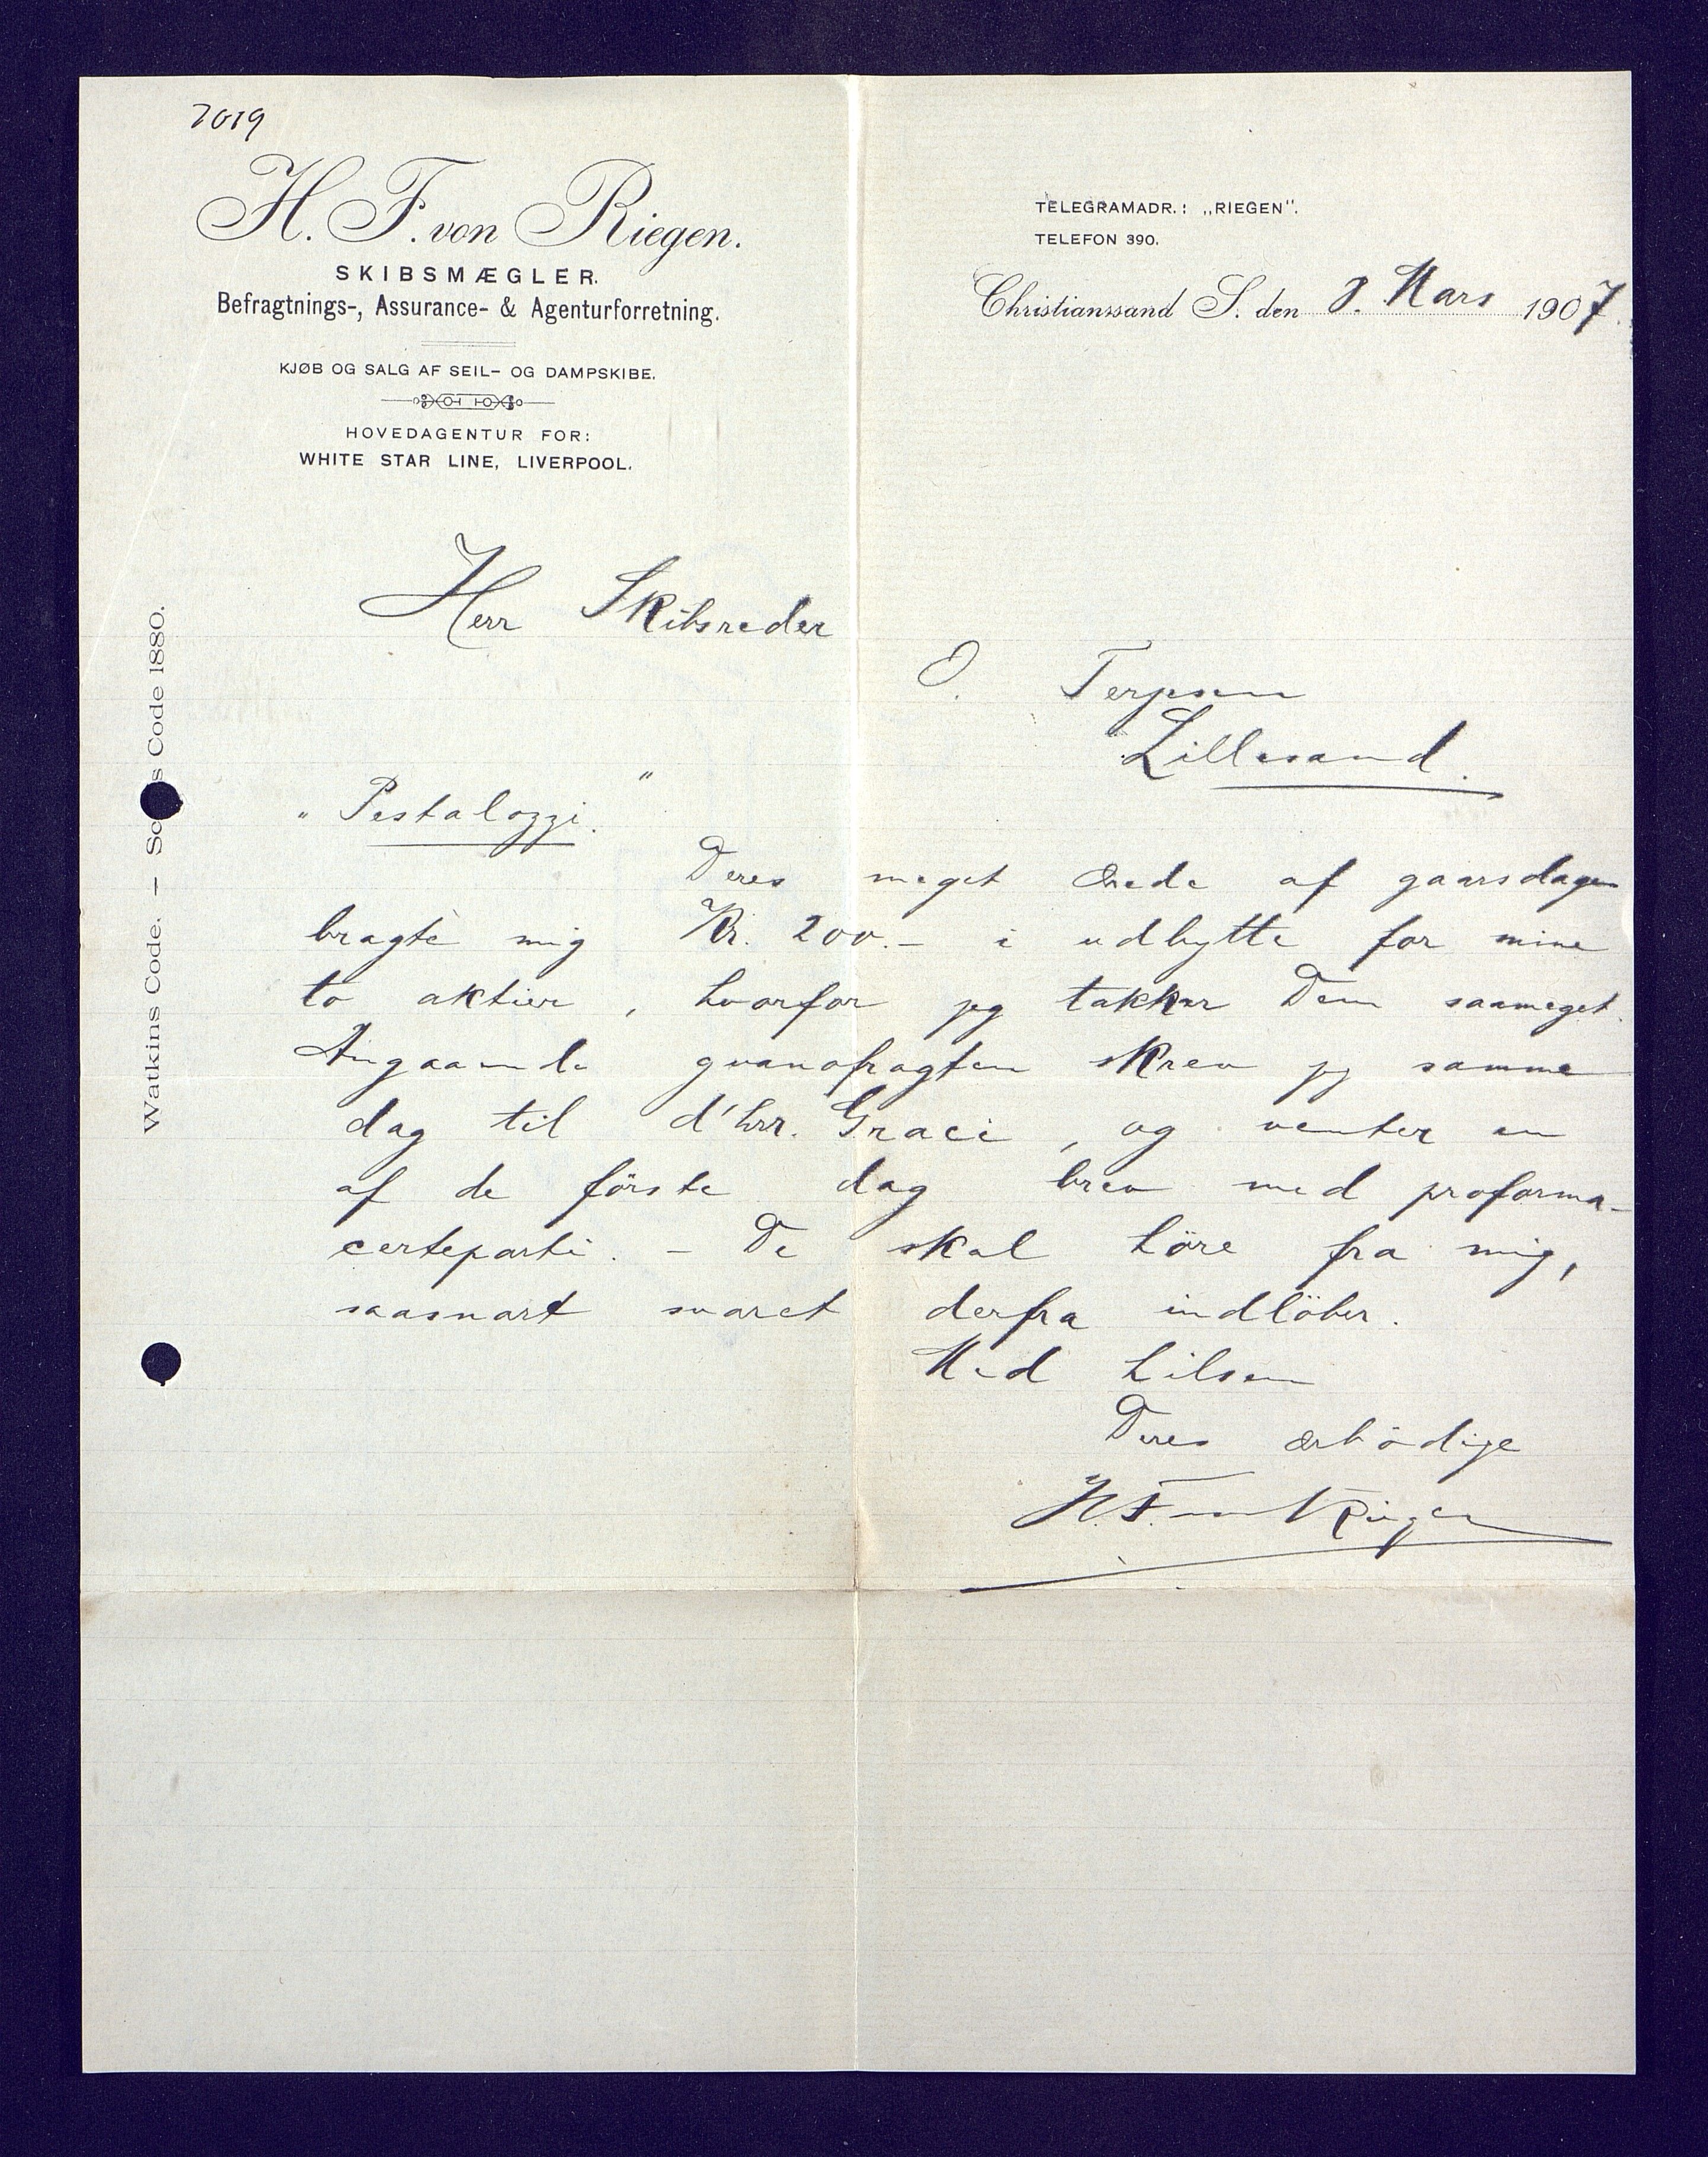 7019
H. F. von Riegen.
SKIBSMÆGLER.
Befragtnings-, Assurance- & Agenturforretning.
KJØB OG SALG AF SEIL- OG DAMPSKIBE.
HOVEDAGENTUR FOR:
WHITE STAR LINE, LIVERPOOL.
TELEGRAMADR.: „RIEGEN".
TELEFON 390.
Christianssand S. den 8. Mars 1907.
Watkins Code. — Code 1880.
Herr Skibsreder
O. Terjesen
Lillesand.
„Pestalozzi."
Deres meget ærede af gaarsdagen
bragte mig Kr. 200.- i udbytte for mine
to aktier, hvorfor jeg takker Dem saameget.
Angaaende guanofragten skrev jeg samme
dag til d'hrr. Grace, og venter en
af de förste dag brev med proforma-
certeparti. - De skal höre fra mig,
saasnart svaret derfra indlöber.
Med hilsen
Deres ærbödige
H. F. von Riegen